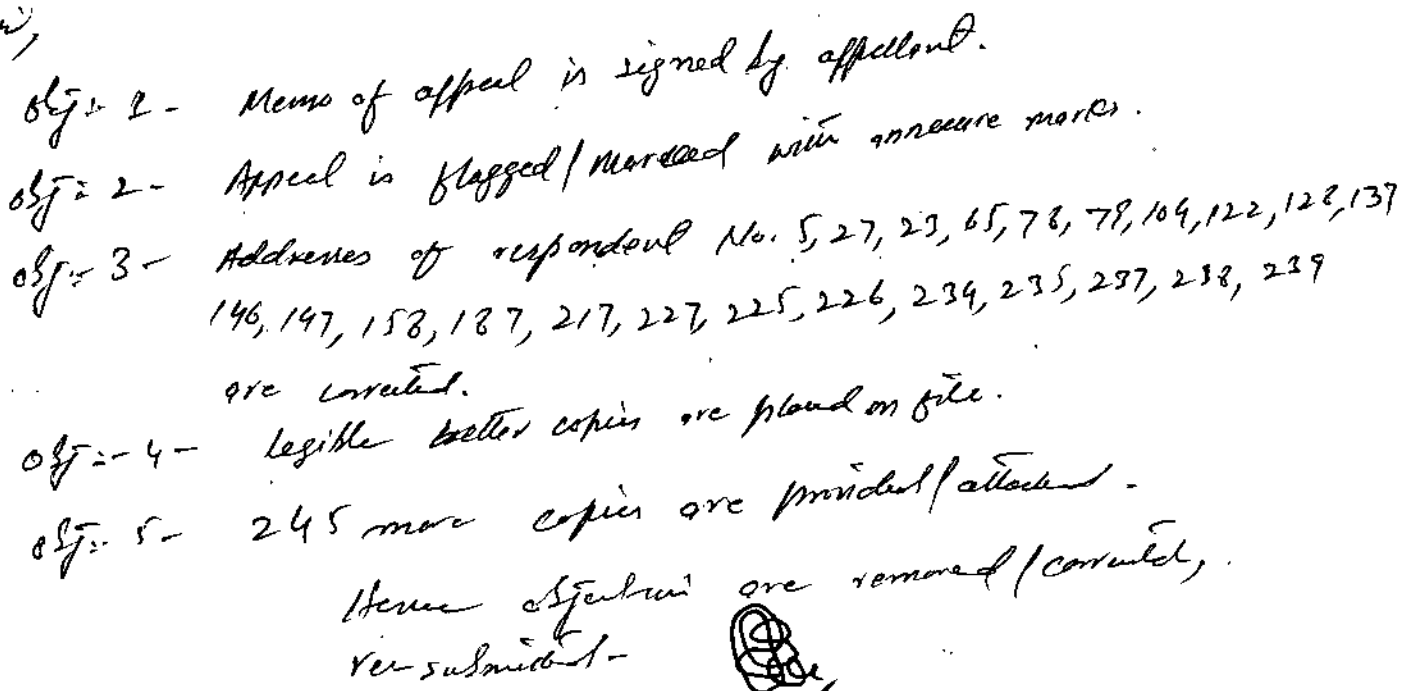 obj:- 1 - Memo of appeal is signed by appellant.
obj:- 2 - Appeal is flagged/marked with annexure marks.
obj:- 3 - Addresses of respondent No. 5, 27, 23, 65, 78, 79, 104, 122, 128, 137
146, 147, 158, 187, 217, 227, 225, 226, 234, 235, 237, 238, 239
are corrected.
obj:- 4 - legible better copies are placed on file.
obj:- 5 - 245 more copies are provided/attached -
Hence objections are removed/corrected,
re-submitted -